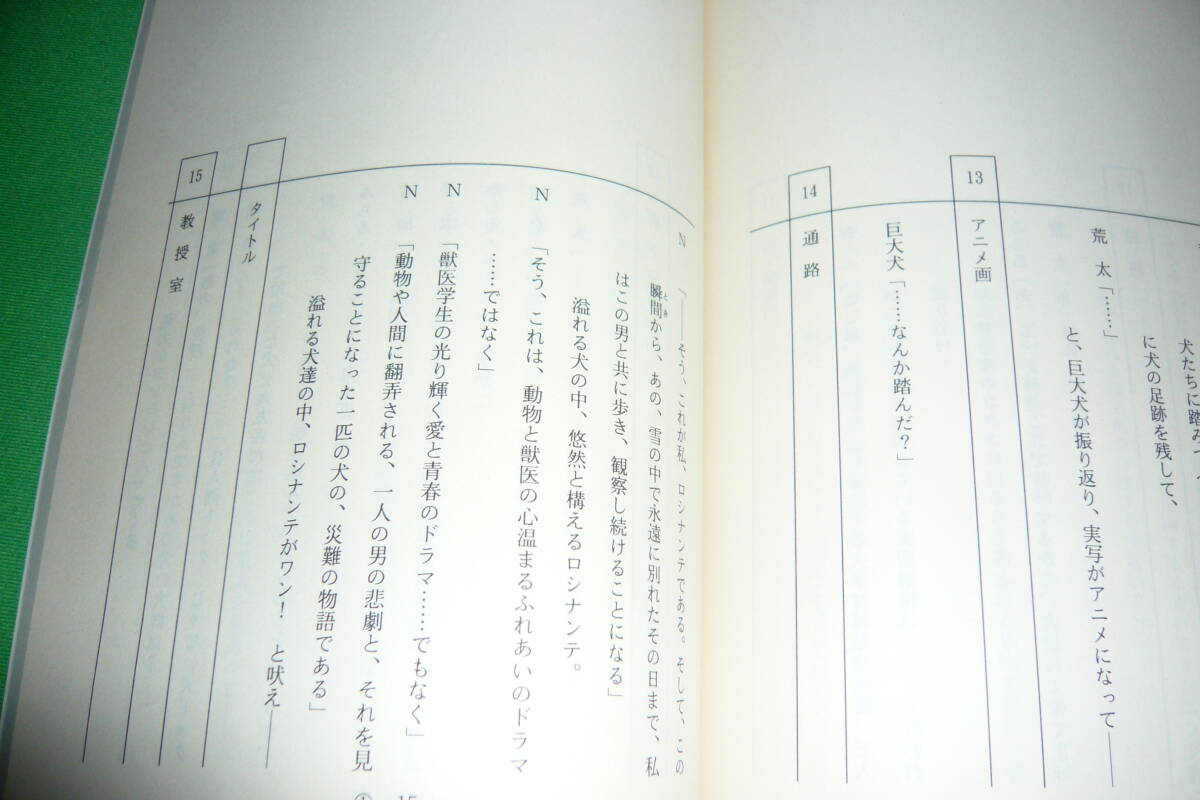 犬たちに踏み
に犬の足跡を残して、
荒太「……」
と、巨大犬が振り返り、実写がアニメになって――
13 アニメ画
巨大犬「……なんか踏んだ？」
14 通路
N「――そう、これが私、ロシナンテである。そして、この
瞬間から、あの、雪の中で永遠に別れたその日まで、私
とき
はこの男と共に歩き、観察し続けることになる」
溢れる犬の中、悠然と構えるロシナンテ。
N「そう、これは、動物と獣医の心温まるふれあいのドラマ
……ではなく」
N「獣医学生の光り輝く愛と青春のドラマ……でもなく」
N「動物や人間に翻弄される、一人の男の悲劇と、それを見
守ることになった一匹の犬の、災難の物語である」
溢れる犬達の中、ロシナンテがワン！　と吠え――
タイトル
15 教授室
15